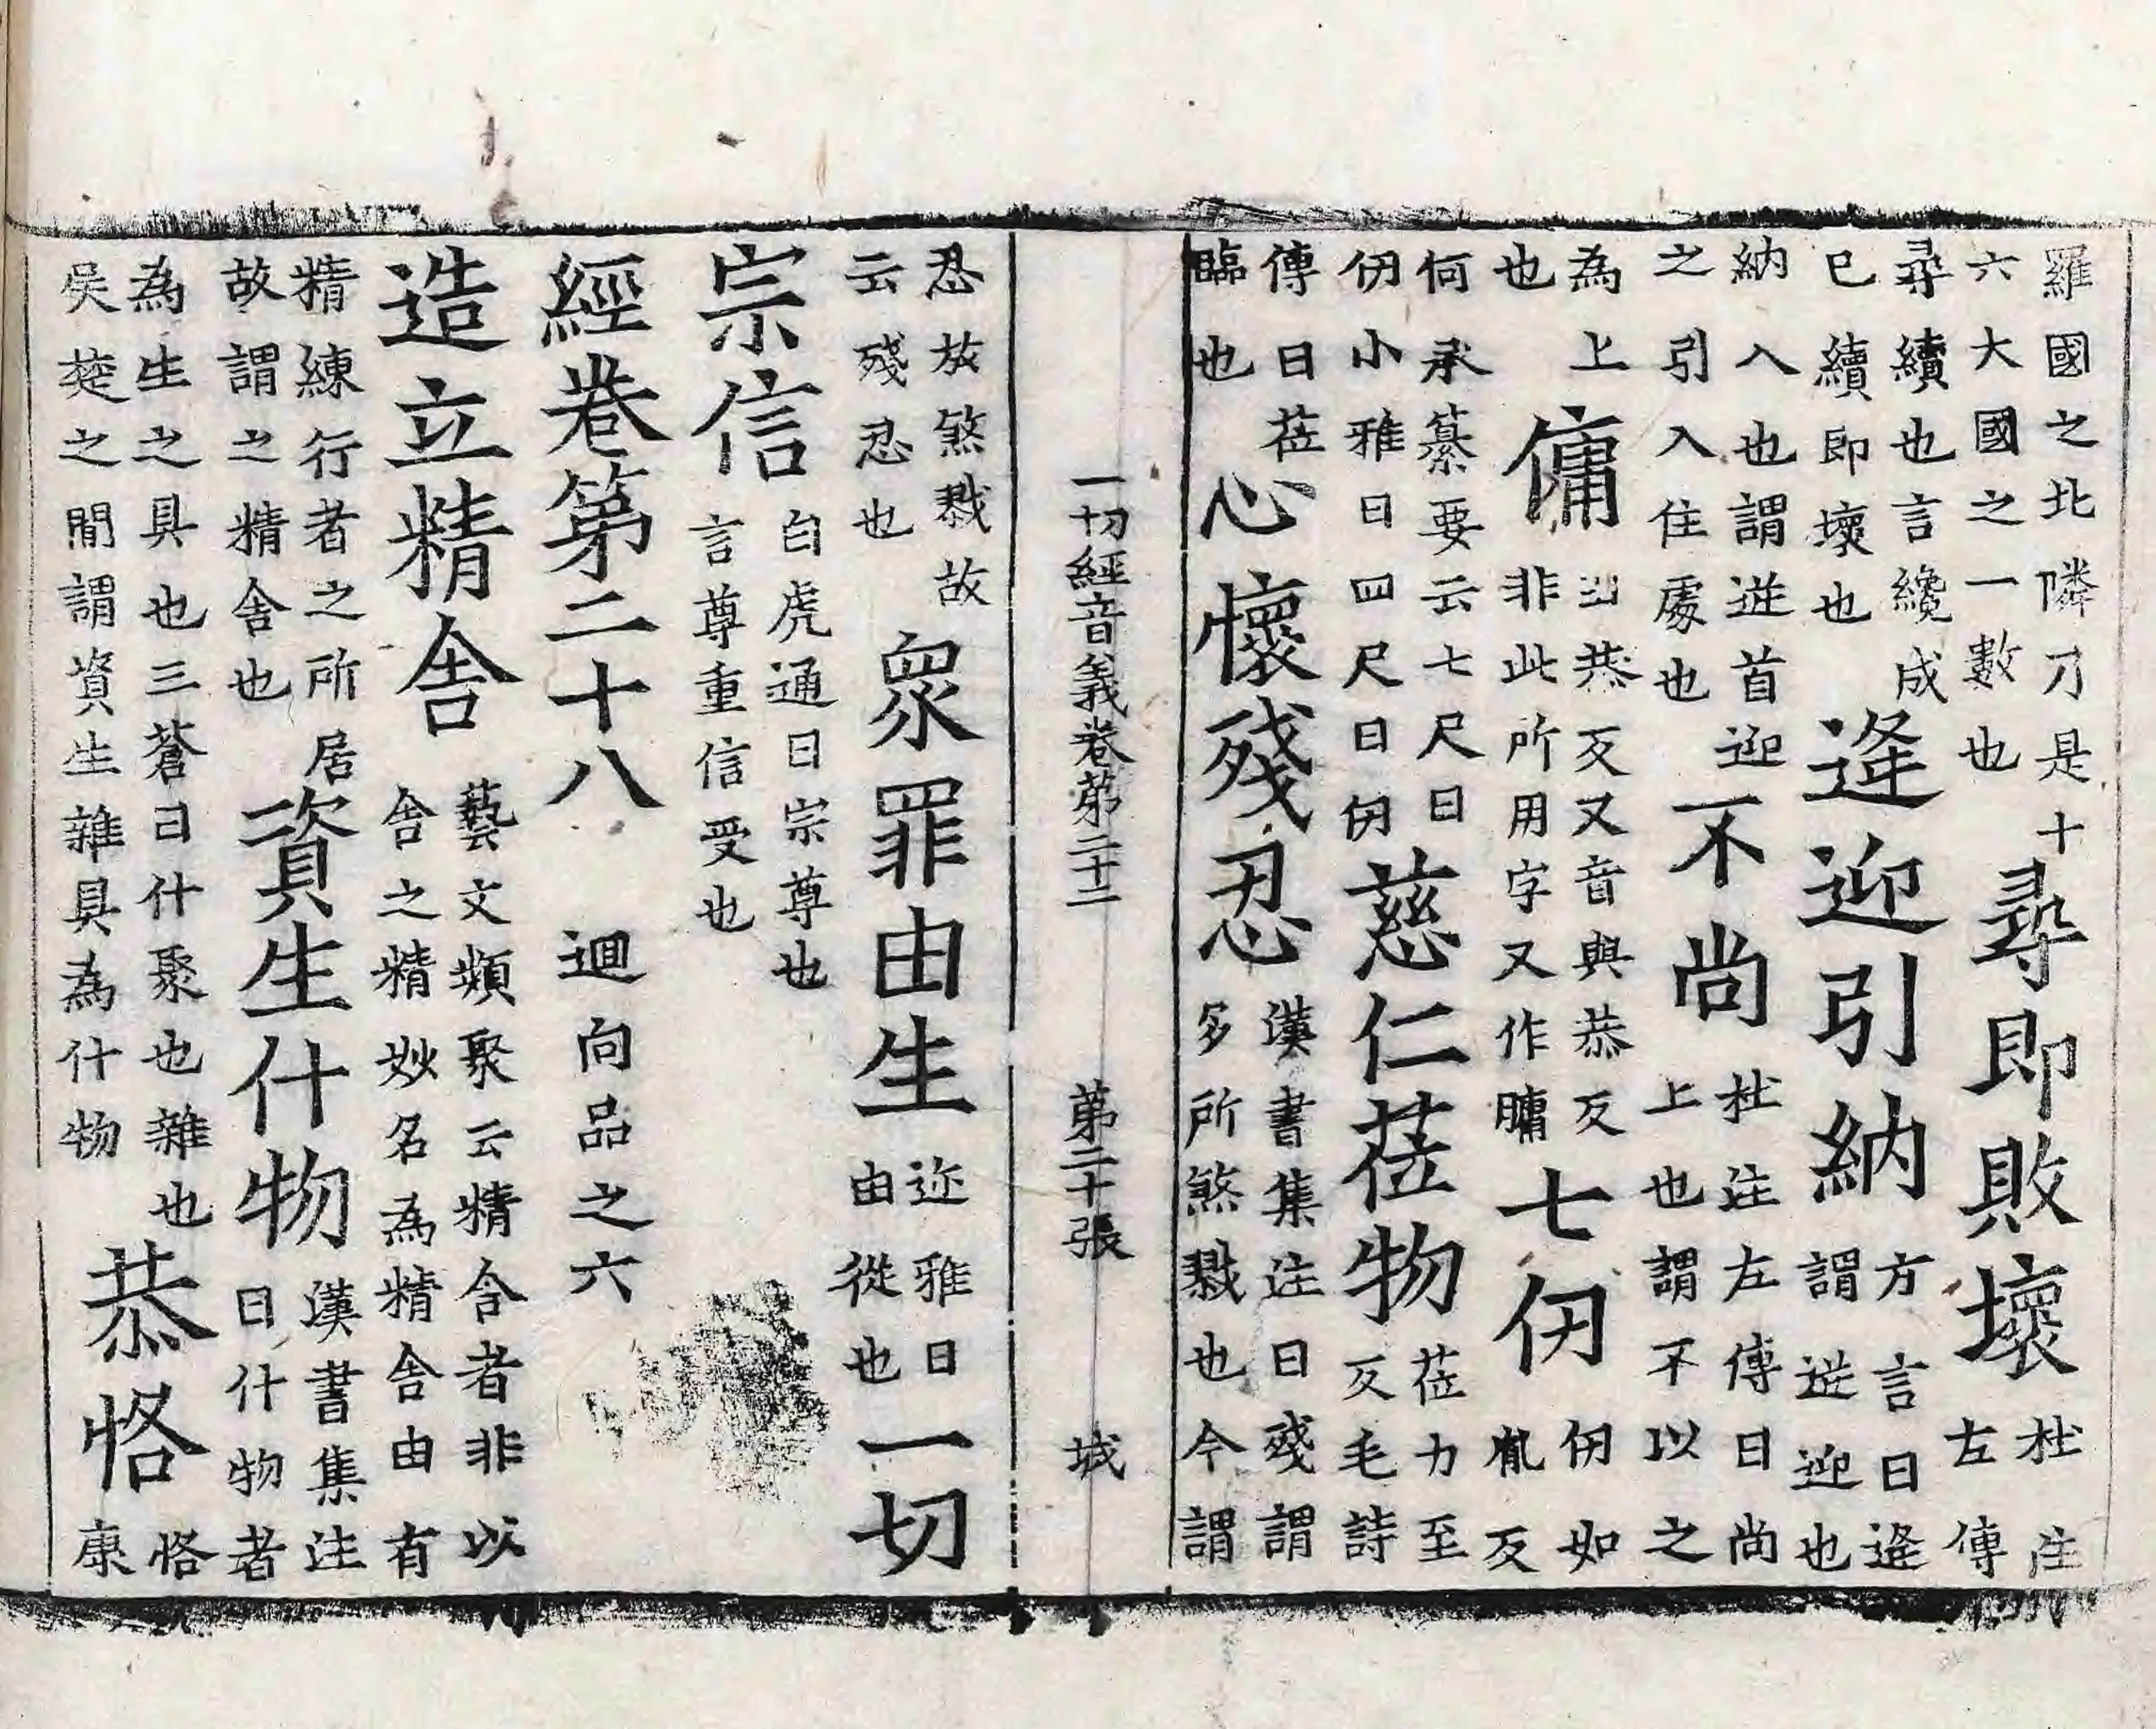 羅國之北隣才是十六大國之一數也尋即敗壞杜注左傳
尋續也言纔成巳續即壞也逢迎引納方言曰逢謂逆迎也
納入也謂逆首迎之引入住處也不尚杜注左傳曰尚上也謂不以之
為上也傭出恭反又音與恭反非此所用字又作𦟛七仞仞如胤反
何承纂要云七尺曰仞小雅曰四尺曰仞慈仁莅物莅力至反毛詩
傳曰莅臨也心懷殘忍漢書集注曰殘謂多所煞戮也今謂
一切經音義卷第二十二 第二十張 城
忍放煞戮故云殘忍也眾罪由生迩雅曰由從也一切
宗信白虎通曰宗尊也言尊重信受也
經卷第二十八 迴向品之六
造立精舍藝文類聚云精舍者非以舍之精妙名為精舍由有
精練行者之所居故謂之精舍也資生什物漢書集注曰什物者
為生之具也三蒼曰什聚也雜也吳楚之間謂資生雜具為什物恭恪恪康